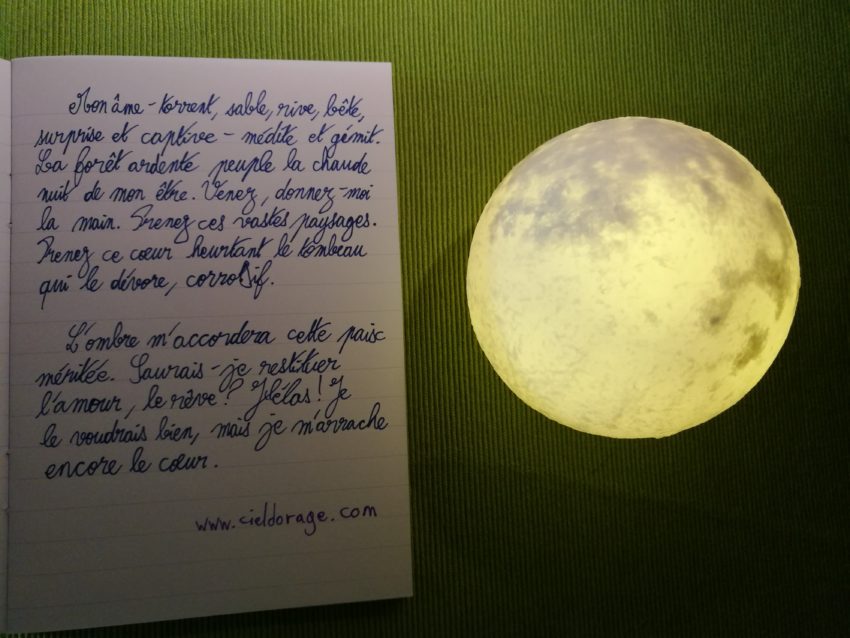 Mon âme - torrent, sable, rive, bête,
surprise et captive - médite et gémit.
La forêt ardente peuple la chaude
nuit de mon être. Venez, donnez-moi
la main. Prenez ces vastes paysages.
Prenez ce cœur heurtant le tombeau
qui le dévore, corrosif.
L'ombre m'accordera cette paix
méritée. Saurais-je restituer
l'amour, le rêve ? Hélas ! Je
le voudrais bien, mais je m'arrache
encore le cœur.
www.cieldorage.com